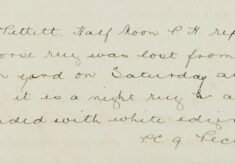 Tettett, Half Moon P.H. rep
orse rug was lost from
yard on Saturday a
it is a night rug
ded with white edgin
P.C. 9.